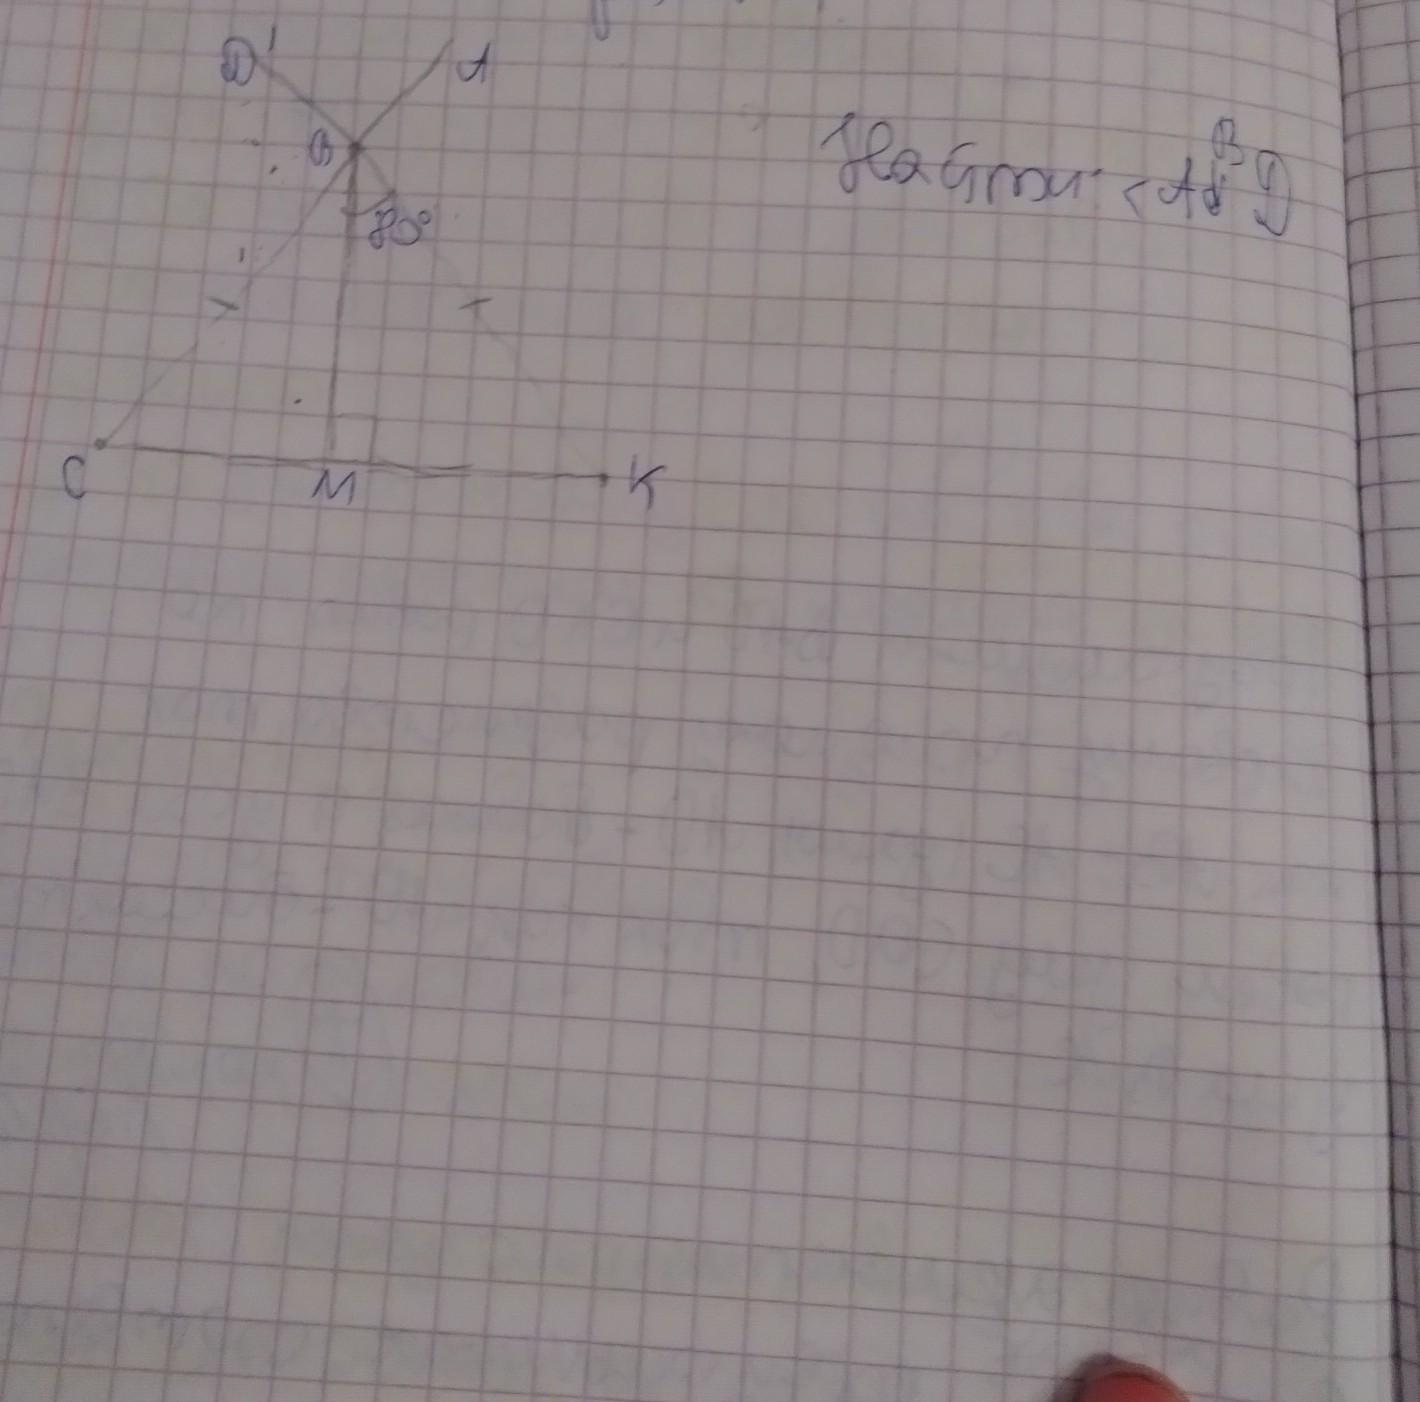 D' A
B
Найти: <ABD
80°
C M K